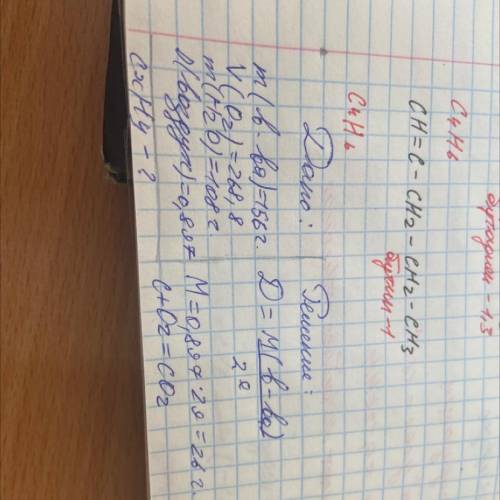 бутадиен - 1,3
C4H6
CH≡C - CH2 - CH2 - CH3
бутин-1
C4H6
Дано:
m(в-ва)=156г.
V(O2)=268,8
m(H2O)=108г.
D(воздуха)=0,897
CxHy - ?
Решение:
D = M(в-ва)
29
M=0,897·29=26г.
C+O2=CO2